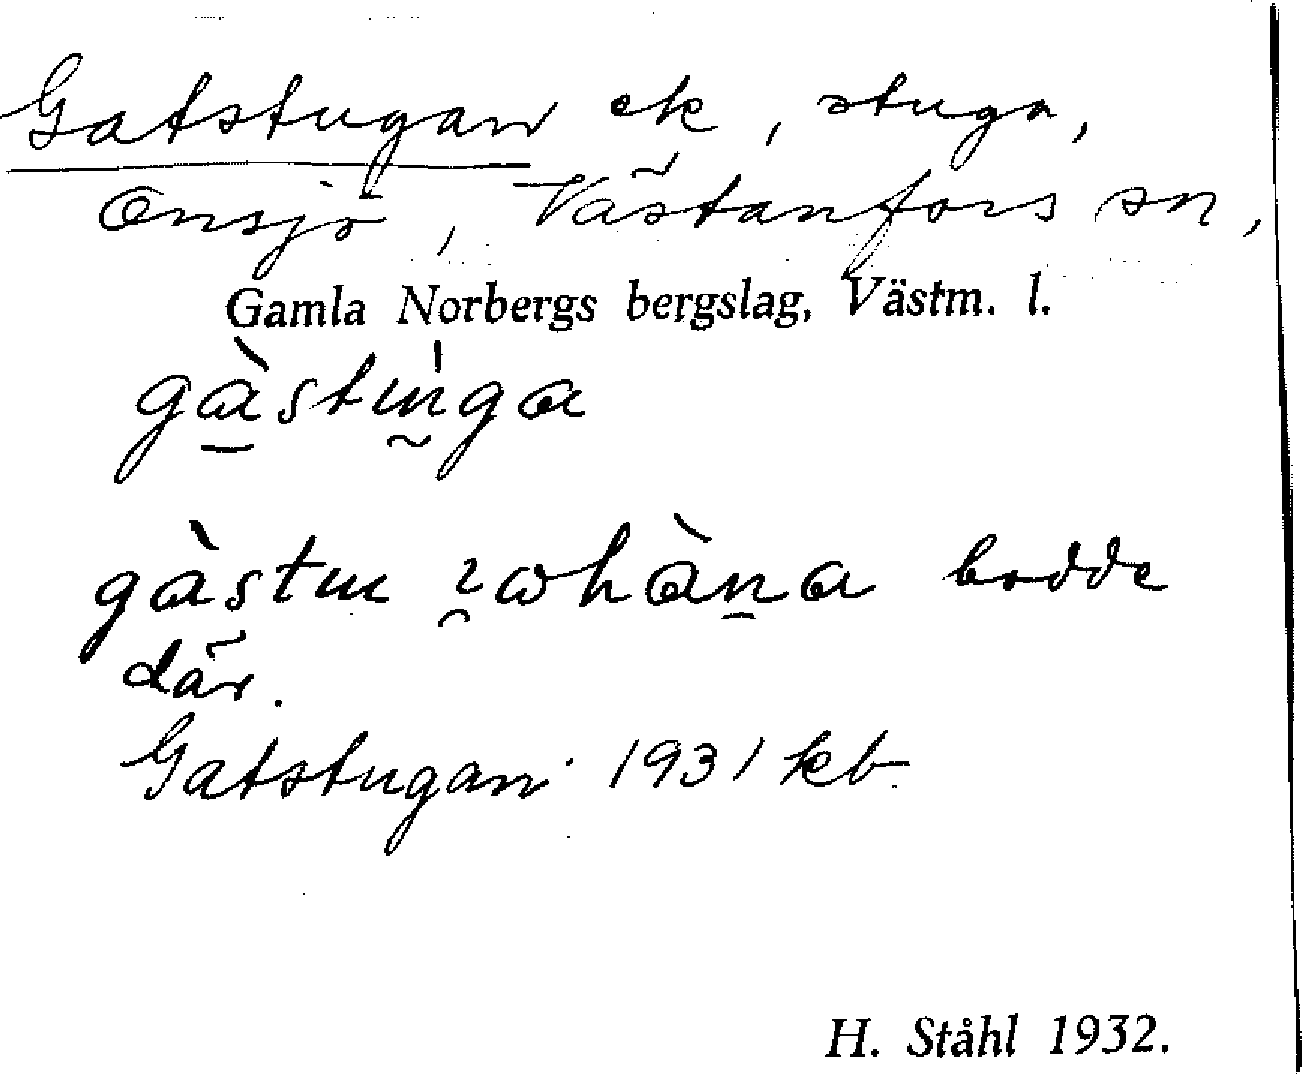 Gatstugan ek, stuga,
Onsjö, Västanfors sn,
Gamla Norbergs bergslag, Västm. l.
bodde
där.
Gatstugan 1931 kb.
H. Ståhl 1932.